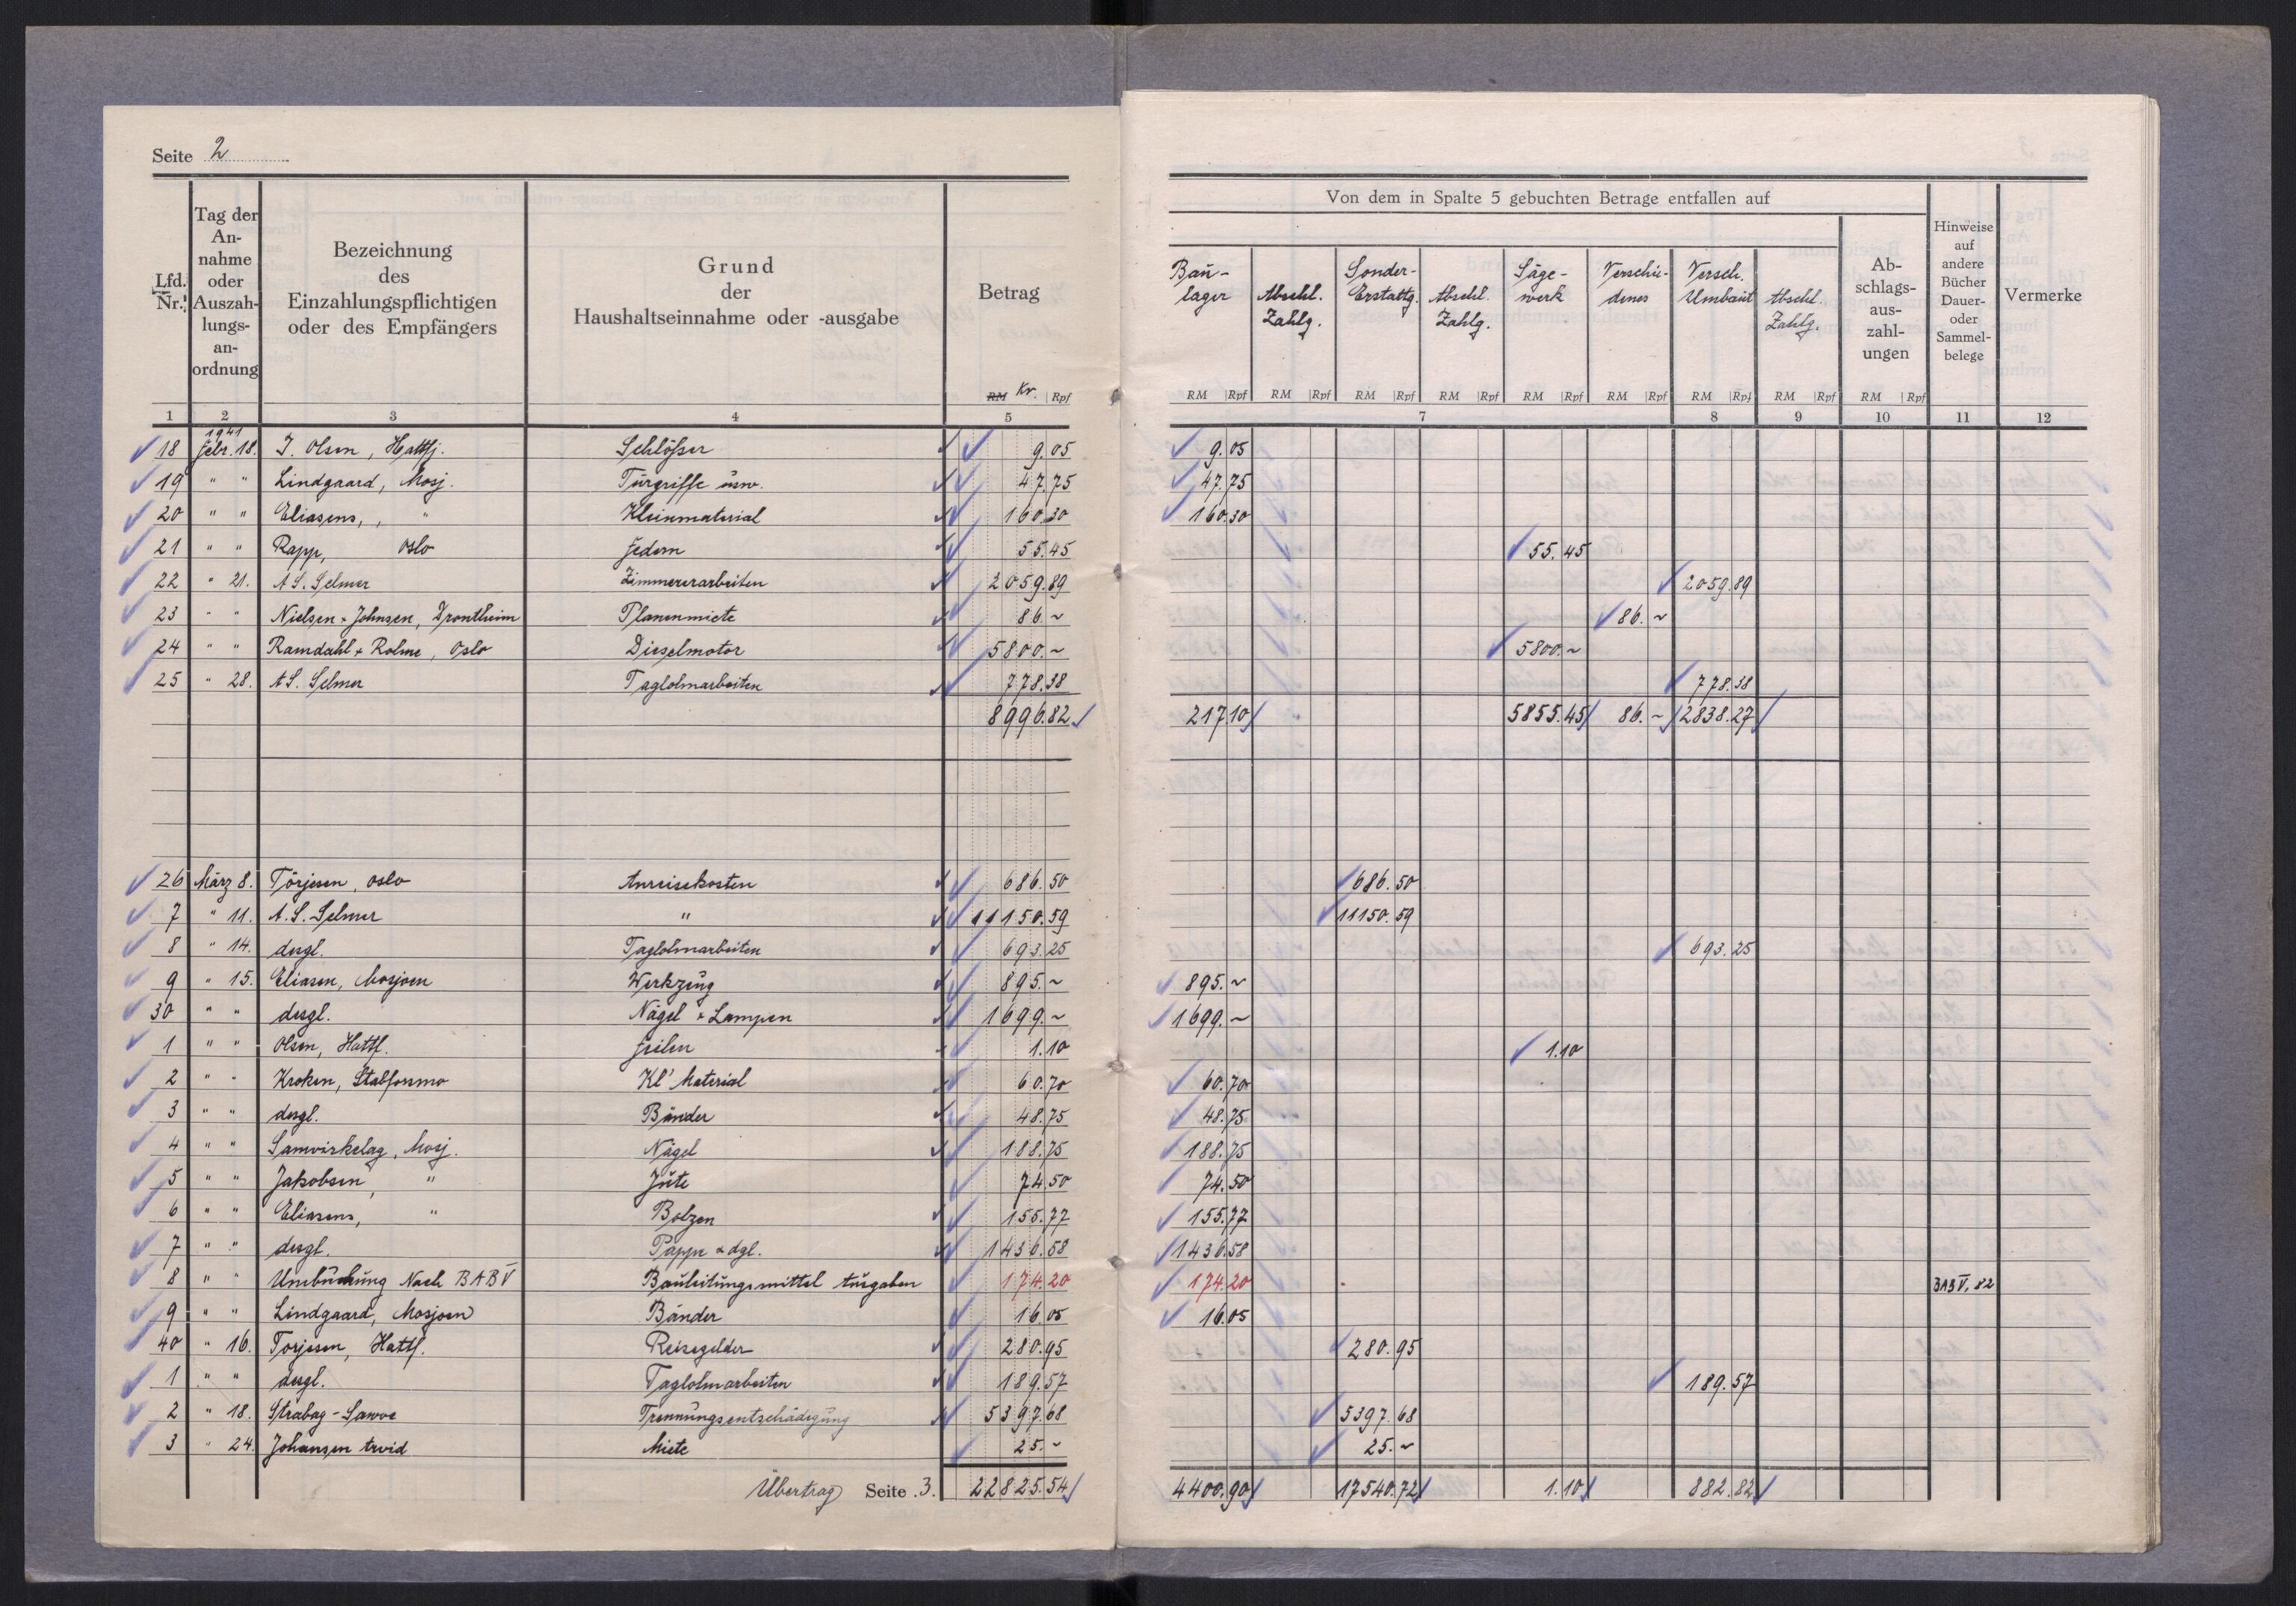 Seite 2
Lfd. Nr. | Tag der An-nahme oder Auszah-lungs-an-ordnung | Bezeichnung des Einzahlungspflichtigen oder des Empfängers | Grund der Haushaltseinnahme oder -ausgabe | Betrag RM Kr. Rpf
1 2 3 4 5
18 1941 Febr. 18. J. Olsen, Hattfj. Schlößer 9.05
19 " " Lindgaard, Mosj. Türgriffe usw. 47.75
20 " " Eliasens, " Kleinmaterial 160.30
21 " " Rapp, Oslo Federn 55.45
22 " 21. A.S. Selmer Zimmererarbeiten 2059.89
23 " " Nielsen + Johnsen, Drontheim Planenmiete 86.~
24 " " Ramdahl + Rolme, Oslo Dieselmotor 5800.~
25 " 28. A.S. Selmer Taglohnarbeiten 778.38
8996.82
26 März 8. Törjesen, Oslo Anreisekosten 686.50
7 " 11. A.S. Selmer " 11150.59
8 " 14. desgl. Taglohnarbeiten 693.25
9 " 15. Eliasen, Mosjoen Werkzeug 895.~
30 " " desgl. Nägel + Lampen 1699.~
1 " " Olsen, Hattf. Feilen 1.10
2 " " Kroken, Stabforsmo Kl' Material 60.70
3 " " desgl. Bänder 48.75
4 " " Samvirkelag, Mosj. Nägel 188.75
5 " " Jakobsen, " Jute 74.50
6 " " Eliasens, " Bolzen 155.77
7 " " desgl. Pappe & dgl. 1436.58
8 " " Umbuchung Nach BAB V Bauleitungsmittel Ausgaben 174.20
9 " " Lindgaard, Mosjoen Bänder 16.05
40 " 16. Torjesen, Hattf. Reisegelder 280.95
1 " " desgl. Taglohnarbeiten 189.57
2 " 18. Strabag-Sawoe Trennungsentschädigung 5397.68
3 " 24. Johansen Arvid Miete 25.~
Übertrag Seite 3. 22825.54
Von dem in Spalte 5 gebuchten Betrage entfallen auf
Bau-lager | Abschl. Zahlg. | Sonder-Erstattg. | Abschl. Zahlg. | Säge-werk | Verschie-denes | Versch. Umbaut | Abschl. Zahlg. | Ab-schlags-aus-zahl-ungen | Hinweise auf andere Bücher Dauer- oder Sammel-belege | Vermerke
RM Rpf RM Rpf RM Rpf RM Rpf RM Rpf RM Rpf RM Rpf RM Rpf RM Rpf
7 8 9 10 11 12
9.05
47.75
160.30
55.45
2059.89
86.~
5800.~
778.38
217.10 5855.45 86.~ 2838.27
686.50
11150.59
693.25
895.~
1699.~
1.10
60.70
48.75
188.75
74.50
155.77
1436.58
174.20 BAB V, 82
16.05
280.95
189.57
5397.68
25.~
4400.90 17540.72 1.10 882.82